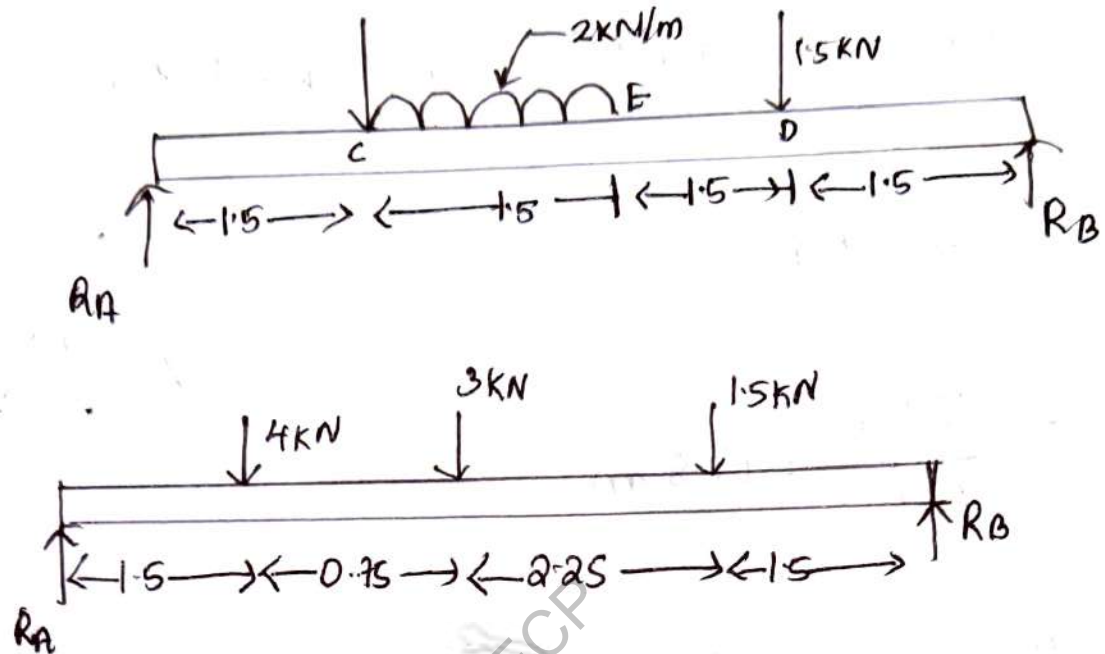 2KN/m
1.5KN
E
C
D
1.5
1.5
1.5
1.5
RA
RB
4KN
3KN
1.5KN
1.5
0.75
2.25
1.5
RA
RB
ECP